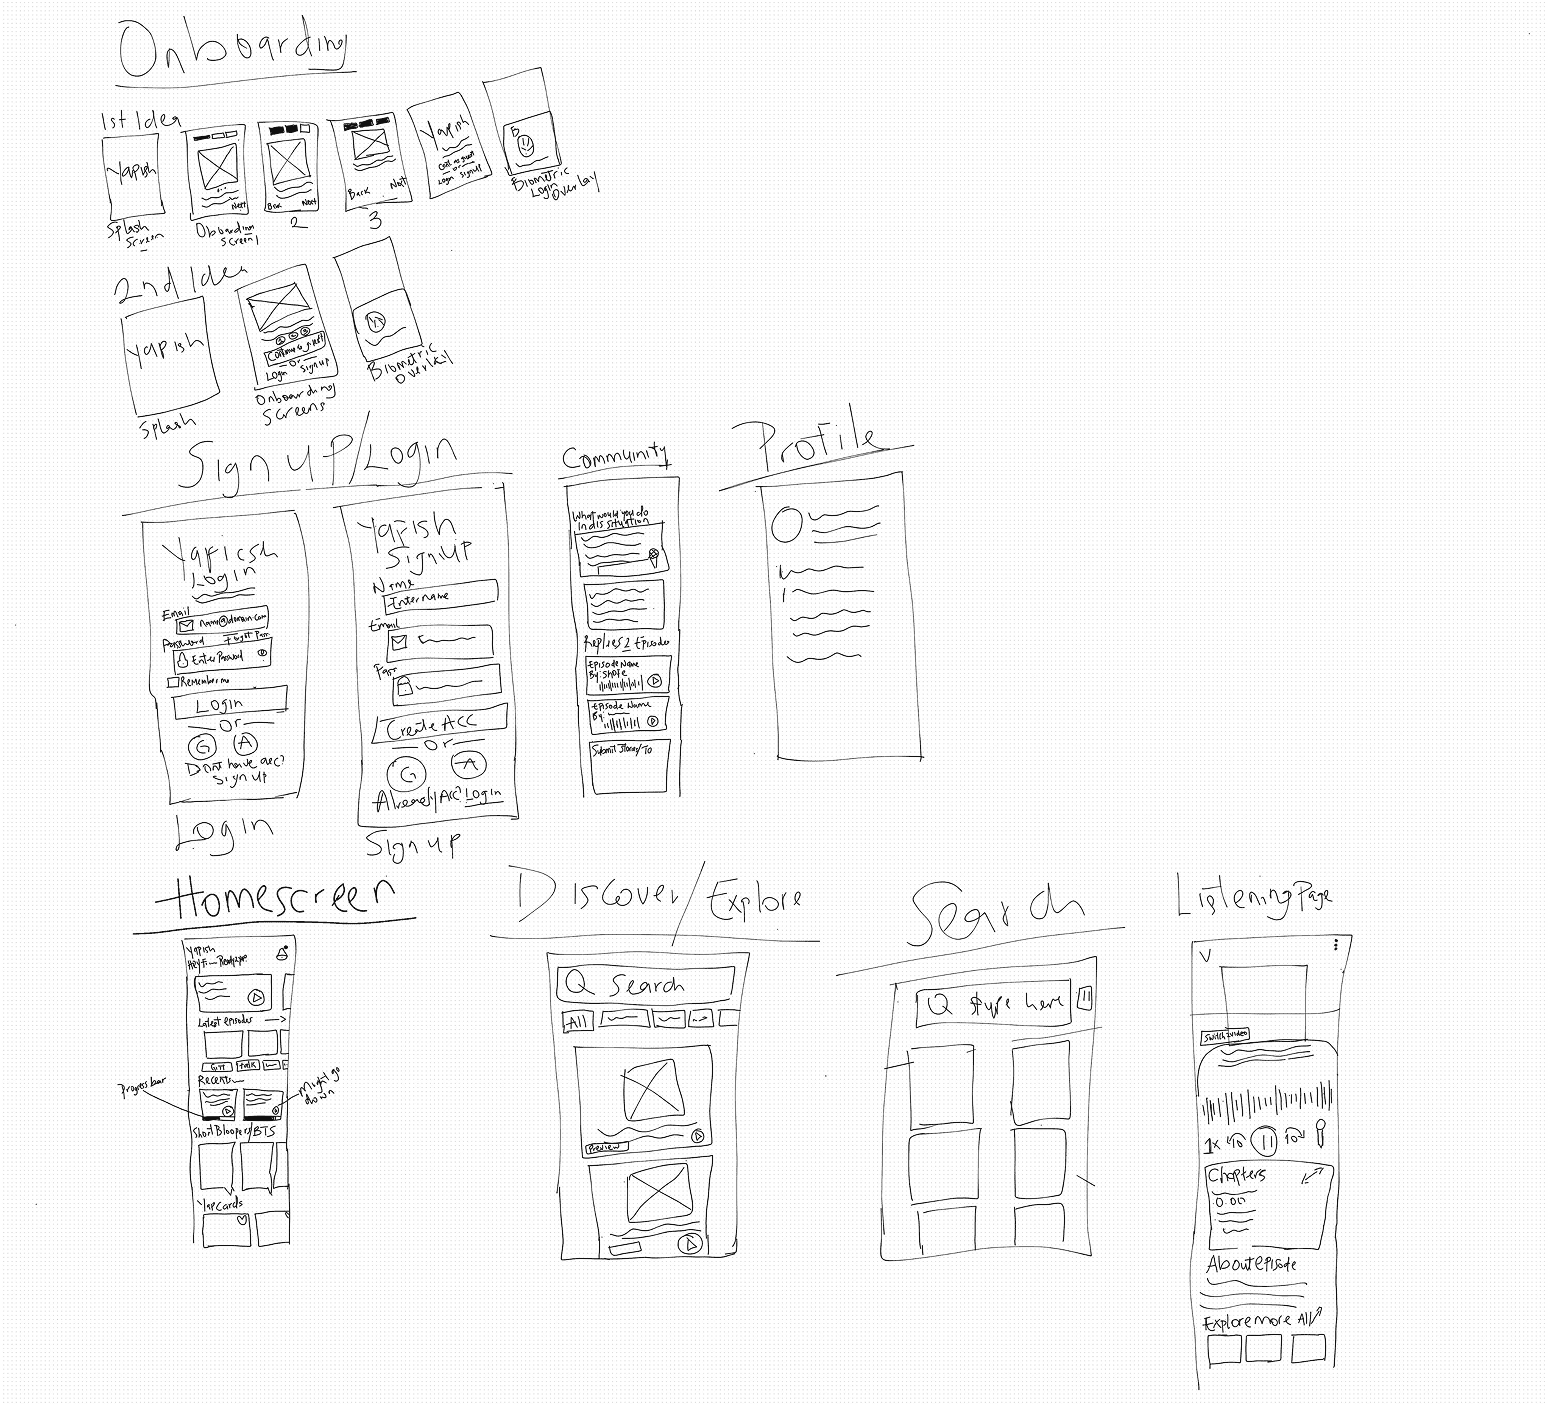 Onboarding
1st Idea
Yapish
Splash
Screen
Next
Onboarding
Screen 1
Back Next
2
Back Next
3
Yapish
Cont as guest
or
Login Signup
Biometric
Login
Overlay
2nd Idea
Yapish
Splash
Continue as guest
or
Login Signup
Onboarding
Screens
Biometric
Sign up/Login
Yapicsh
Login
Email
name@domain.com
Password Forgot Pass
Enter Password
Remember me
Login
Or
G A
Dont have acc?
Sign up
Login
Yapish
Sign up
Name
Enter name
Email
Pass
Create Acc
Or
G A
Already Acc? Login
Sign up
Community
What would you do
In dis situation
Replies 2 Episodes
Episode Name
By:
Episode Name
By:
Profile
Homescreen
Yapish
Latest episodes
Recents
Progress bar
Might go
down
Short Bloopers/BTS
Yapcards
Discover/Explore
Search
All
Preview
Search
type here
Listening Page
Switch 2 video
1x 10 10
Chapters
0.00
About episode
Explore more All